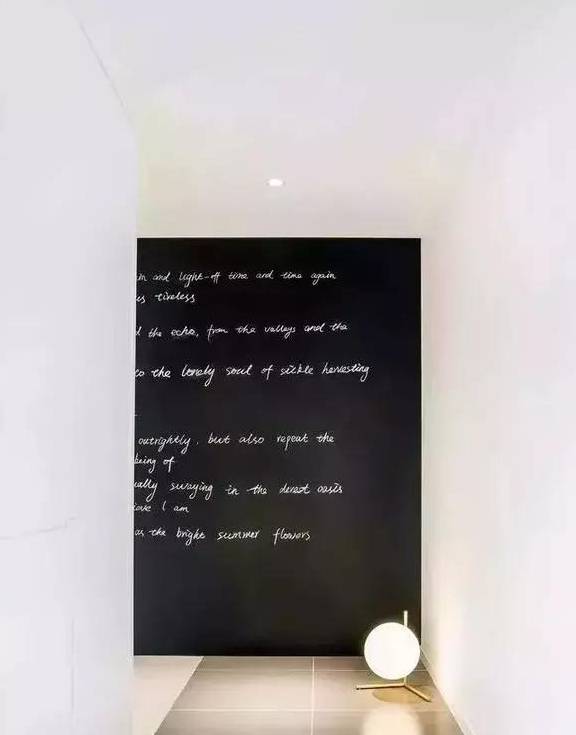 and light-off time and time again
tireless
the echo, from the valleys and the
to the lonely soul of sickle harvesting
outrightly, but also repeat the
being of
swaying in the derest oasis
I am
as the bright summer flowers